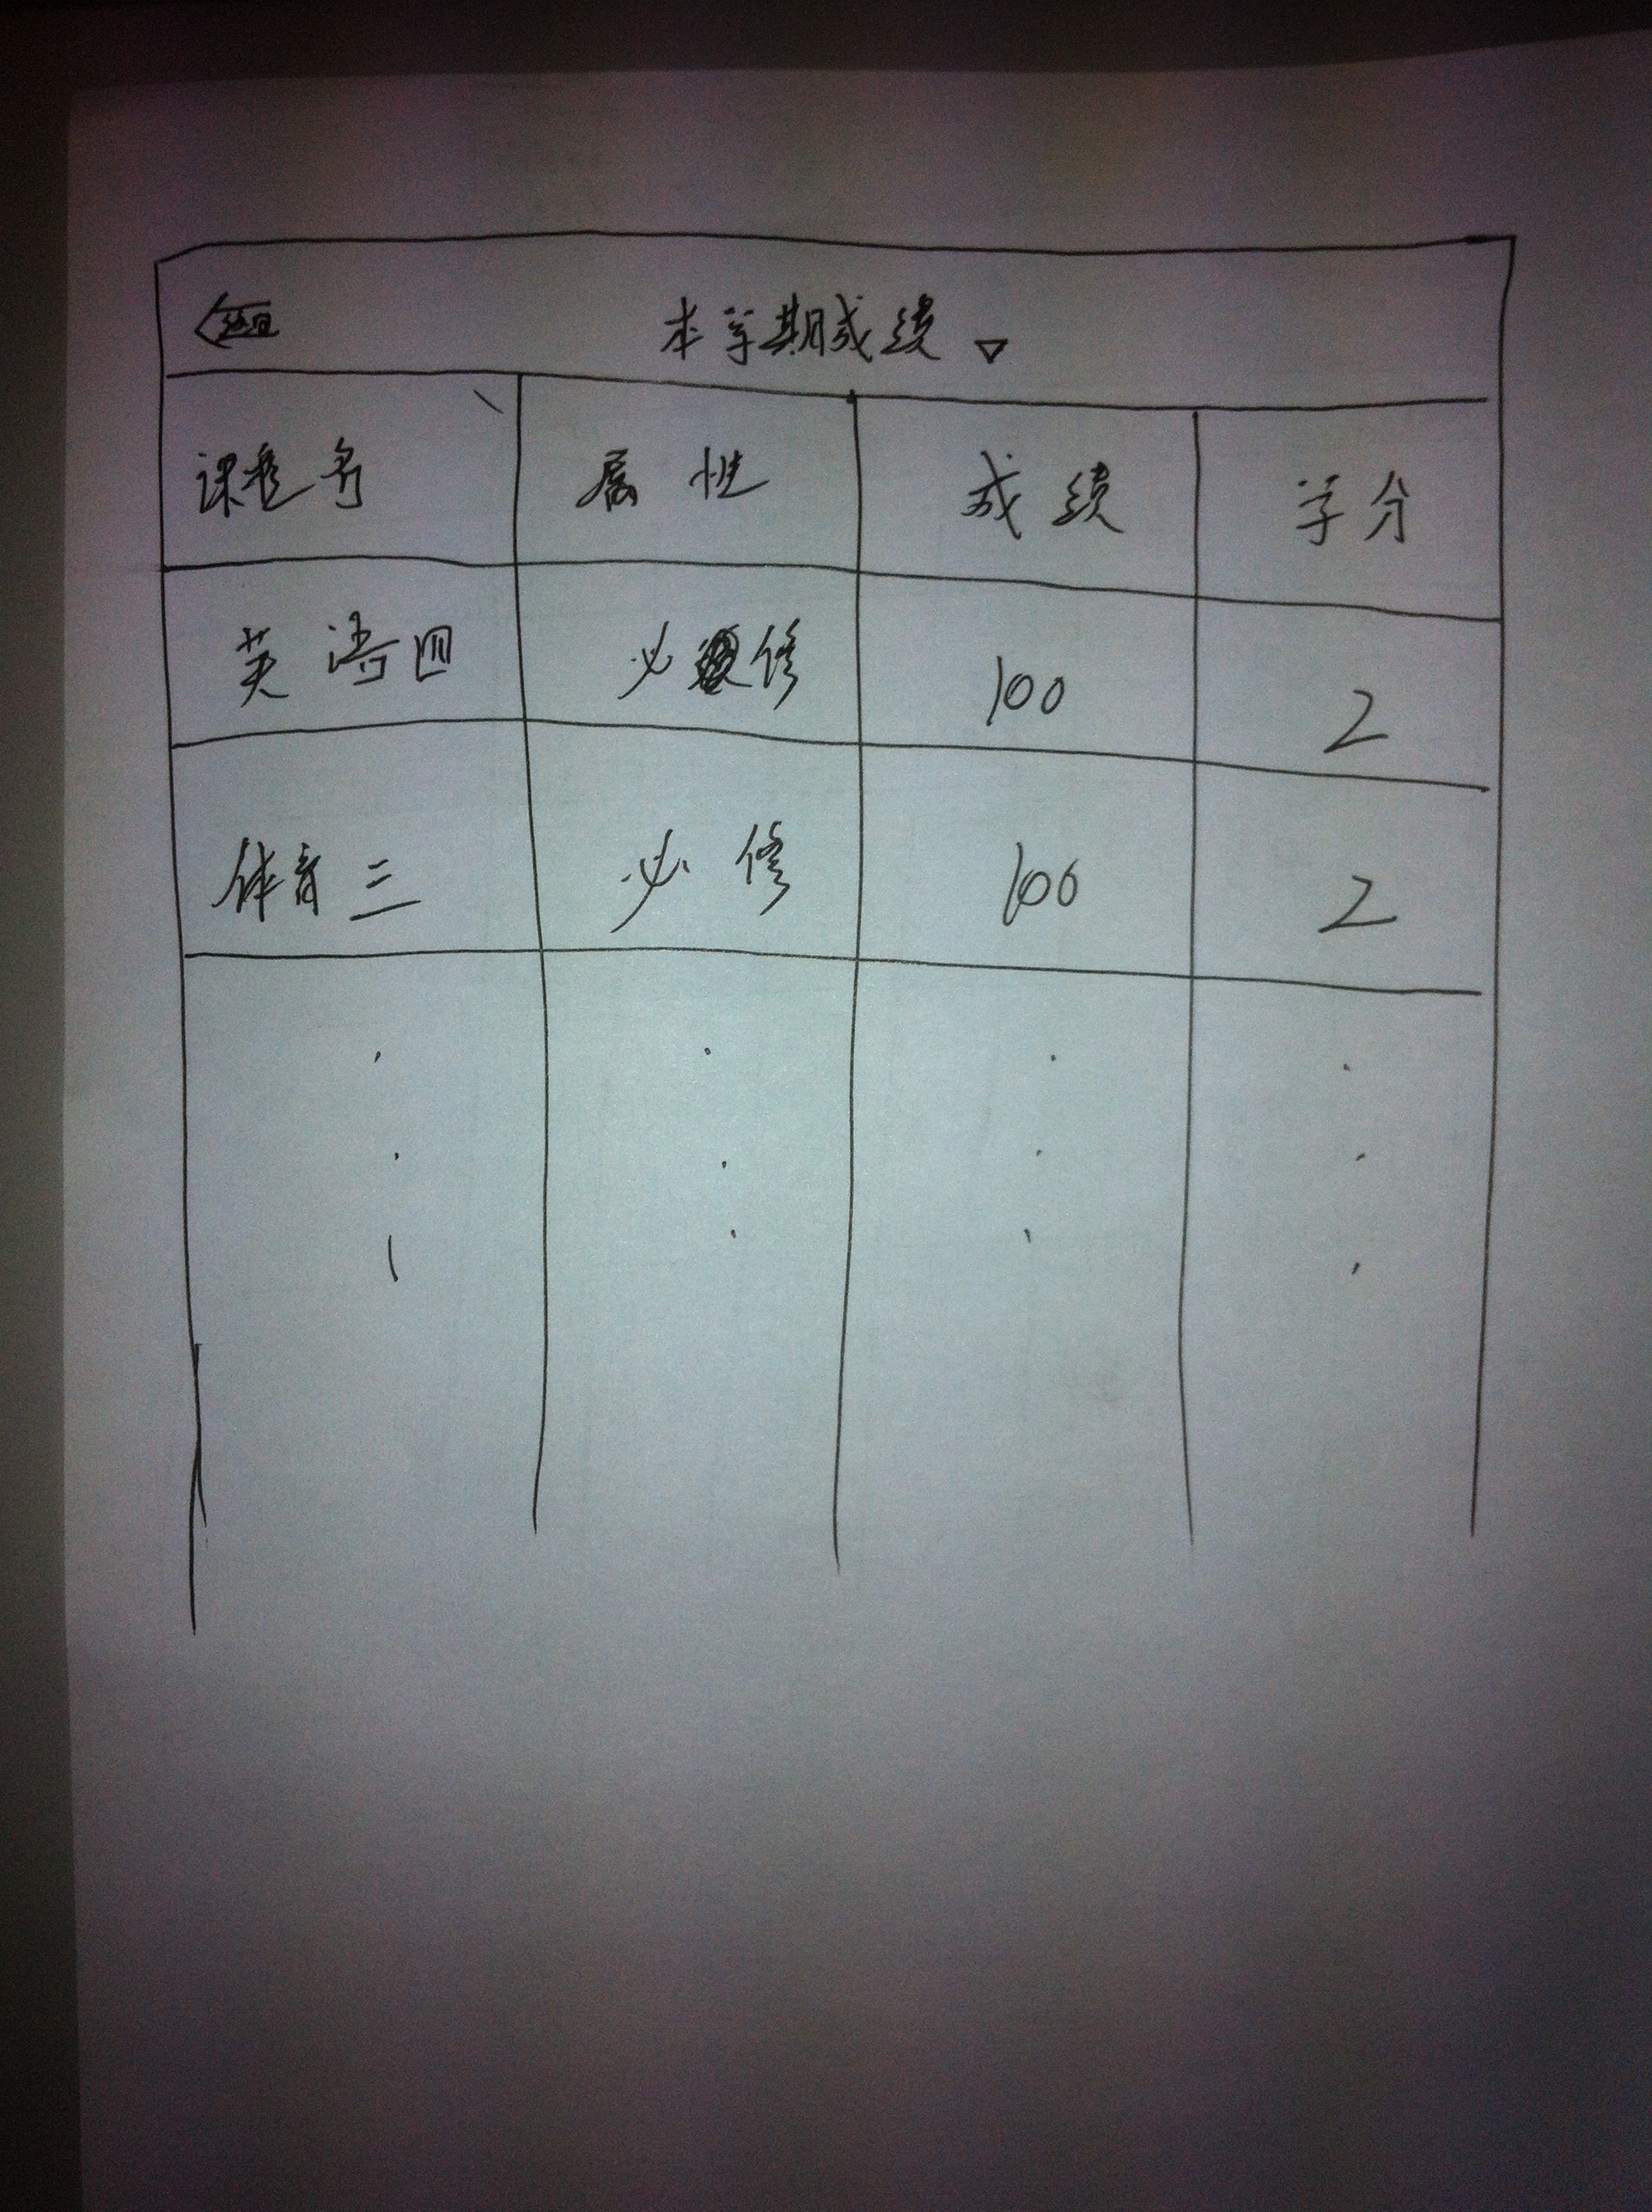 返回 本学期成绩
课程名 属性 成绩 学分
英语四 必修 100 2
体育三 必修 100 2